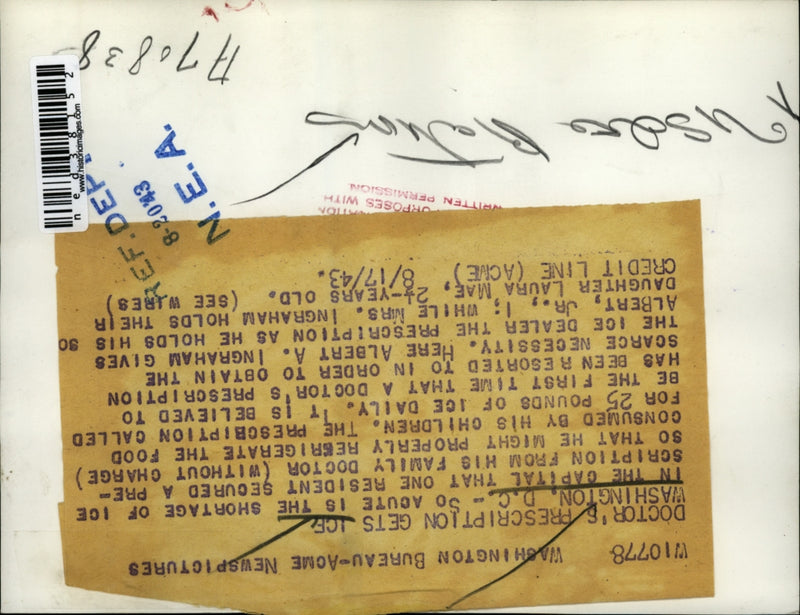 W10778 WASHINGTON BUREAU-ACME NEWSPICTURES
DOCTOR'S PRESCRIPTION GETS ICE
WASHINGTON, D.C.-- SO ACUTE IS THE SHORTAGE OF ICE
IN THE CAPITAL THAT ONE RESIDENT SECURED A PRE-
SCRIPTION FROM HIS FAMILY DOCTOR (WITHOUT CHARGE)
SO THAT HE MIGHT PROPERLY REFRIGERATE THE FOOD
CONSUMED BY HIS CHILDREN. THE PRESCRIPTION CALLED
FOR 25 POUNDS OF ICE DAILY. IT IS BELIEVED TO
BE THE FIRST TIME THAT A DOCTOR'S PRESCRIPTION
HAS BEEN RESORTED TO IN ORDER TO OBTAIN THE
SCARCE NECESSITY. HERE ALBERT A. INGRAHAM GIVES
THE ICE DEALER THE PRESCRIPTION AS HE HOLDS HIS SO
ALBERT, JR., 1; WHILE MRS. INGRAHAM HOLDS THEIR
DAUGHTER LAURA MAE, 2½-YEARS OLD. (SEE WIRES)
CREDIT LINE (ACME) 8/17/43.
WRITTEN PERMISSION
URPOSES WITH
REF. DEPT.
8-2043
N.E.A.
www.historicimages.com
ned38152
A70838